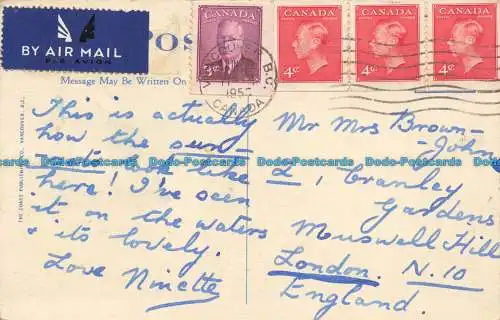 BY AIR MAIL
PAR AVION
POS
Message May Be Written On
CANADA
3¢
CANADA
4¢
CANADA
4¢
CANADA
4¢
VANCOUVER B.C.
195
CANADA
This is actually
how the sun-
look like
here! I've seen
it on the waters
& its lovely.
Love Ninette
Mr Mrs Brown-
John
1 Cranley
Gardens
Muswell Hill
London. N.10
England.
THE COAST PUBLISHING CO. VANCOUVER, B.C.
Dodo-Postcards Dodo-Postcards Dodo-Postcards Dodo-Postcards Dodo-Postcards